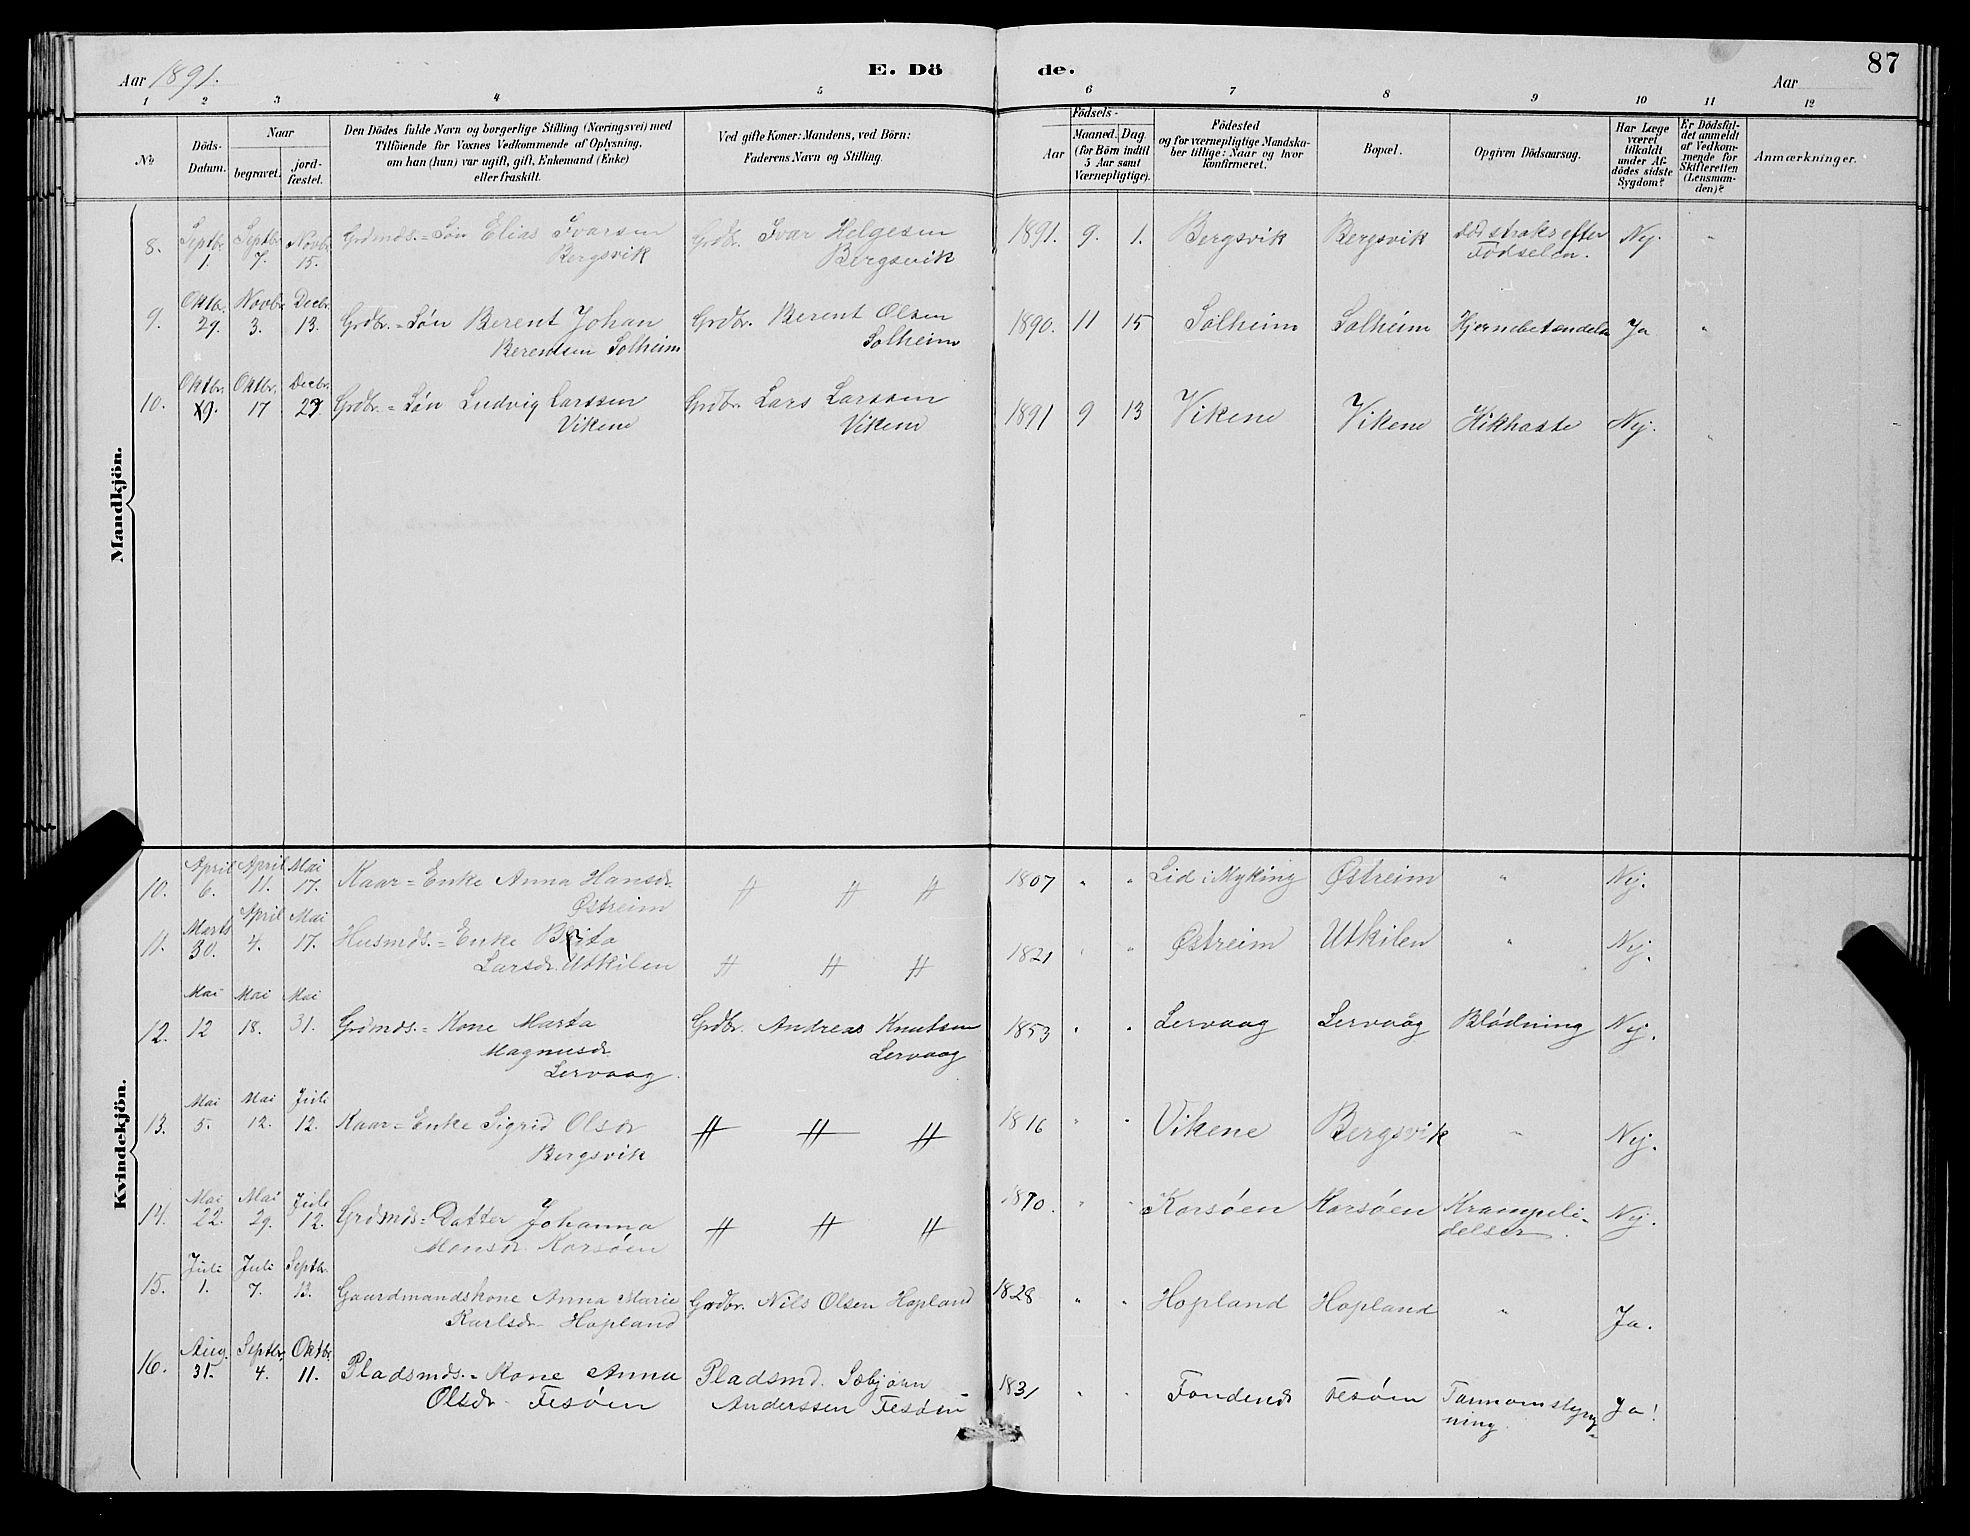 Aar 1891.
E. Dö de.
Aar
87
1 2 3 4 5 6 7 8 9 10 11 12
No
Döds-Datum.
Naar begravet.
jord-fæstet.
Den Dödes fulde Navn og borgerlige Stilling (Næringsvei) med
Tilföiende for Voxnes Vedkommende af Oplysning,
om han (hun) var ugift, gift, Enkemand (Enke)
eller fraskilt.
Ved gifte Koner: Mandens, ved Börn:
Faderens Navn og Stilling.
Födsels-
Aar
Maaned. Dag.
(for Börn indtil
5 Aar samt
Værnepligtige).
Födested
og for værnepligtige Mandska-
ber tillige: Naar og hvor
konfirmeret.
Bopæl.
Opgiven Dödsaarsag.
Har Læge
været
tilkaldt
under Af-
dödes sidste
Sygdom?
Er Dödsfal-
det anmeldt
af Vedkom-
mende for
Skifteretten
(Lensman-
den)?
Anmærkninger.
Mandkjön.
8. Septbr. 1. Septbr. 7. Novbr. 15. Grdmds.=Søn Elias Ivarsen Bergsvik Grdbr. Ivar Helgesen Bergsvik 1891. 9. 1. Bergsvik Bergsvik død straks efter Fødselen. Nej. "
9. Oktbr. 29. Novbr. 3. Decbr. 13. Grdbr.=Søn Berent Johan Berentsen Solheim Grdbr. Berent Olsen Solheim 1890. 11 15 Solheim Solheim Hjernebetændelse Ja "
10. Oktbr. 9. Oktbr. 17 Decbr. 29 Grdbr.=Søn Ludvig Larssen Vikene Grdbr. Lars Larssen Vikene 1891 9 13 Vikene Vikene Kikhoste Nej. "
Kvindekjön.
10. April 6. April 11. Mai 17. Kaar=Enke Anna Hansdr. Østreim 1807 " " Lid i Myking Østreim " Nej.
11. Marts 30. April 4. Mai 17. Husmds.=Enke Brita Larsdr. Utkilen 1821 " " Østreim Utkilen " Nej.
12. Mai 12 Mai 18. Mai 31. Grdmds.=Kone Marta Magnusdr. Lervaag. Grdbr. Andreas Knutsen Lervaag 1853 " " Lervaag Lervaag Blødning Nej.
13. Mai 5. Mai 12. Juli 12. Kaar=Enke Sigrid Olsdr Bergsvik 1816 " " Vikene Bergsvik " Nej.
14. Mai 22. Mai 29. Juli 12. Grdmds=Datter Johanna Monsdr Korsøen 1870. " " Korsøen Korsøen Krampeli-delser. Nej.
15. Juli 1. Juli 7. Septbr. 13. Gaardmandskone Anna Marie Karlsdr. Hopland Grdbr. Nils Olsen Hopland 1828 " " Hopland Hopland " Ja.
16. Aug. 31. Septbr. 4. Oktbr. 11. Pladsmds.=Kone Anna Olsdr. Fesøen Pladsmd. Sæbjørn Anderssen Fesøen 1831 " " Fondenes Fesøen Ja!